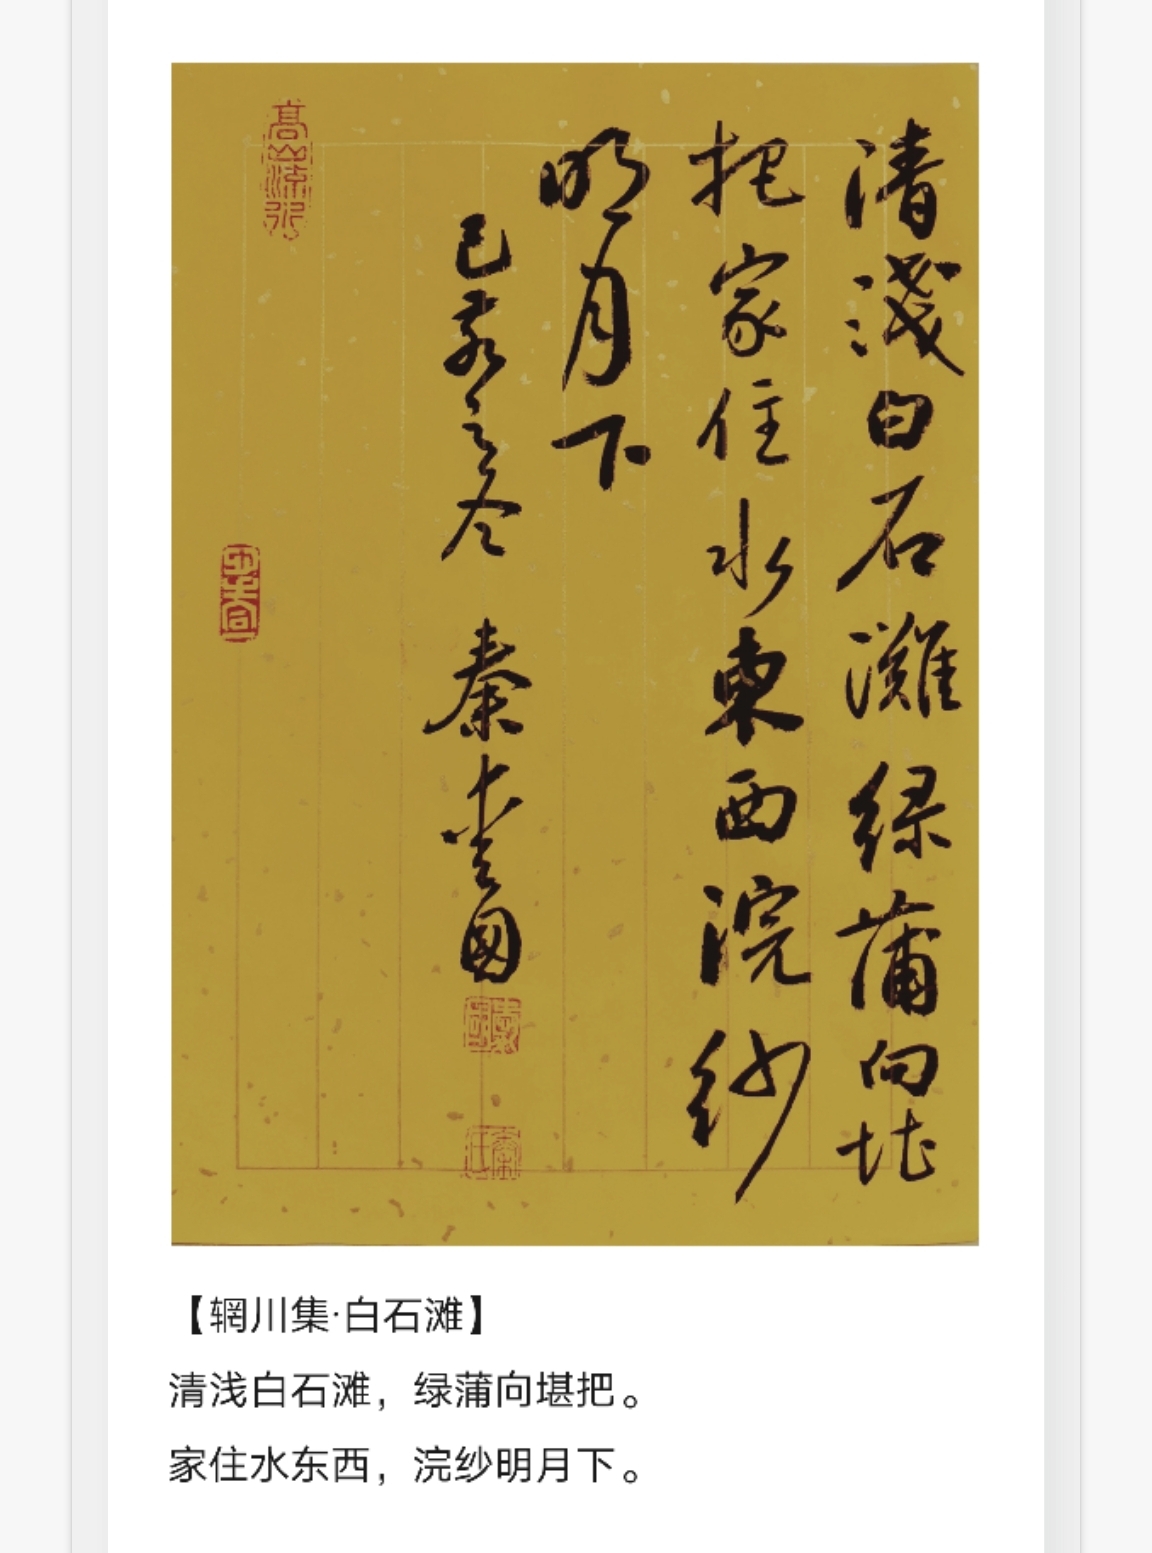 清淺白石灘綠蒲向堪
把家住水東西浣紗
明月下
己亥之冬 秦
高山流水
【辋川集·白石滩】
清浅白石滩，绿蒲向堪把。
家住水东西，浣纱明月下。